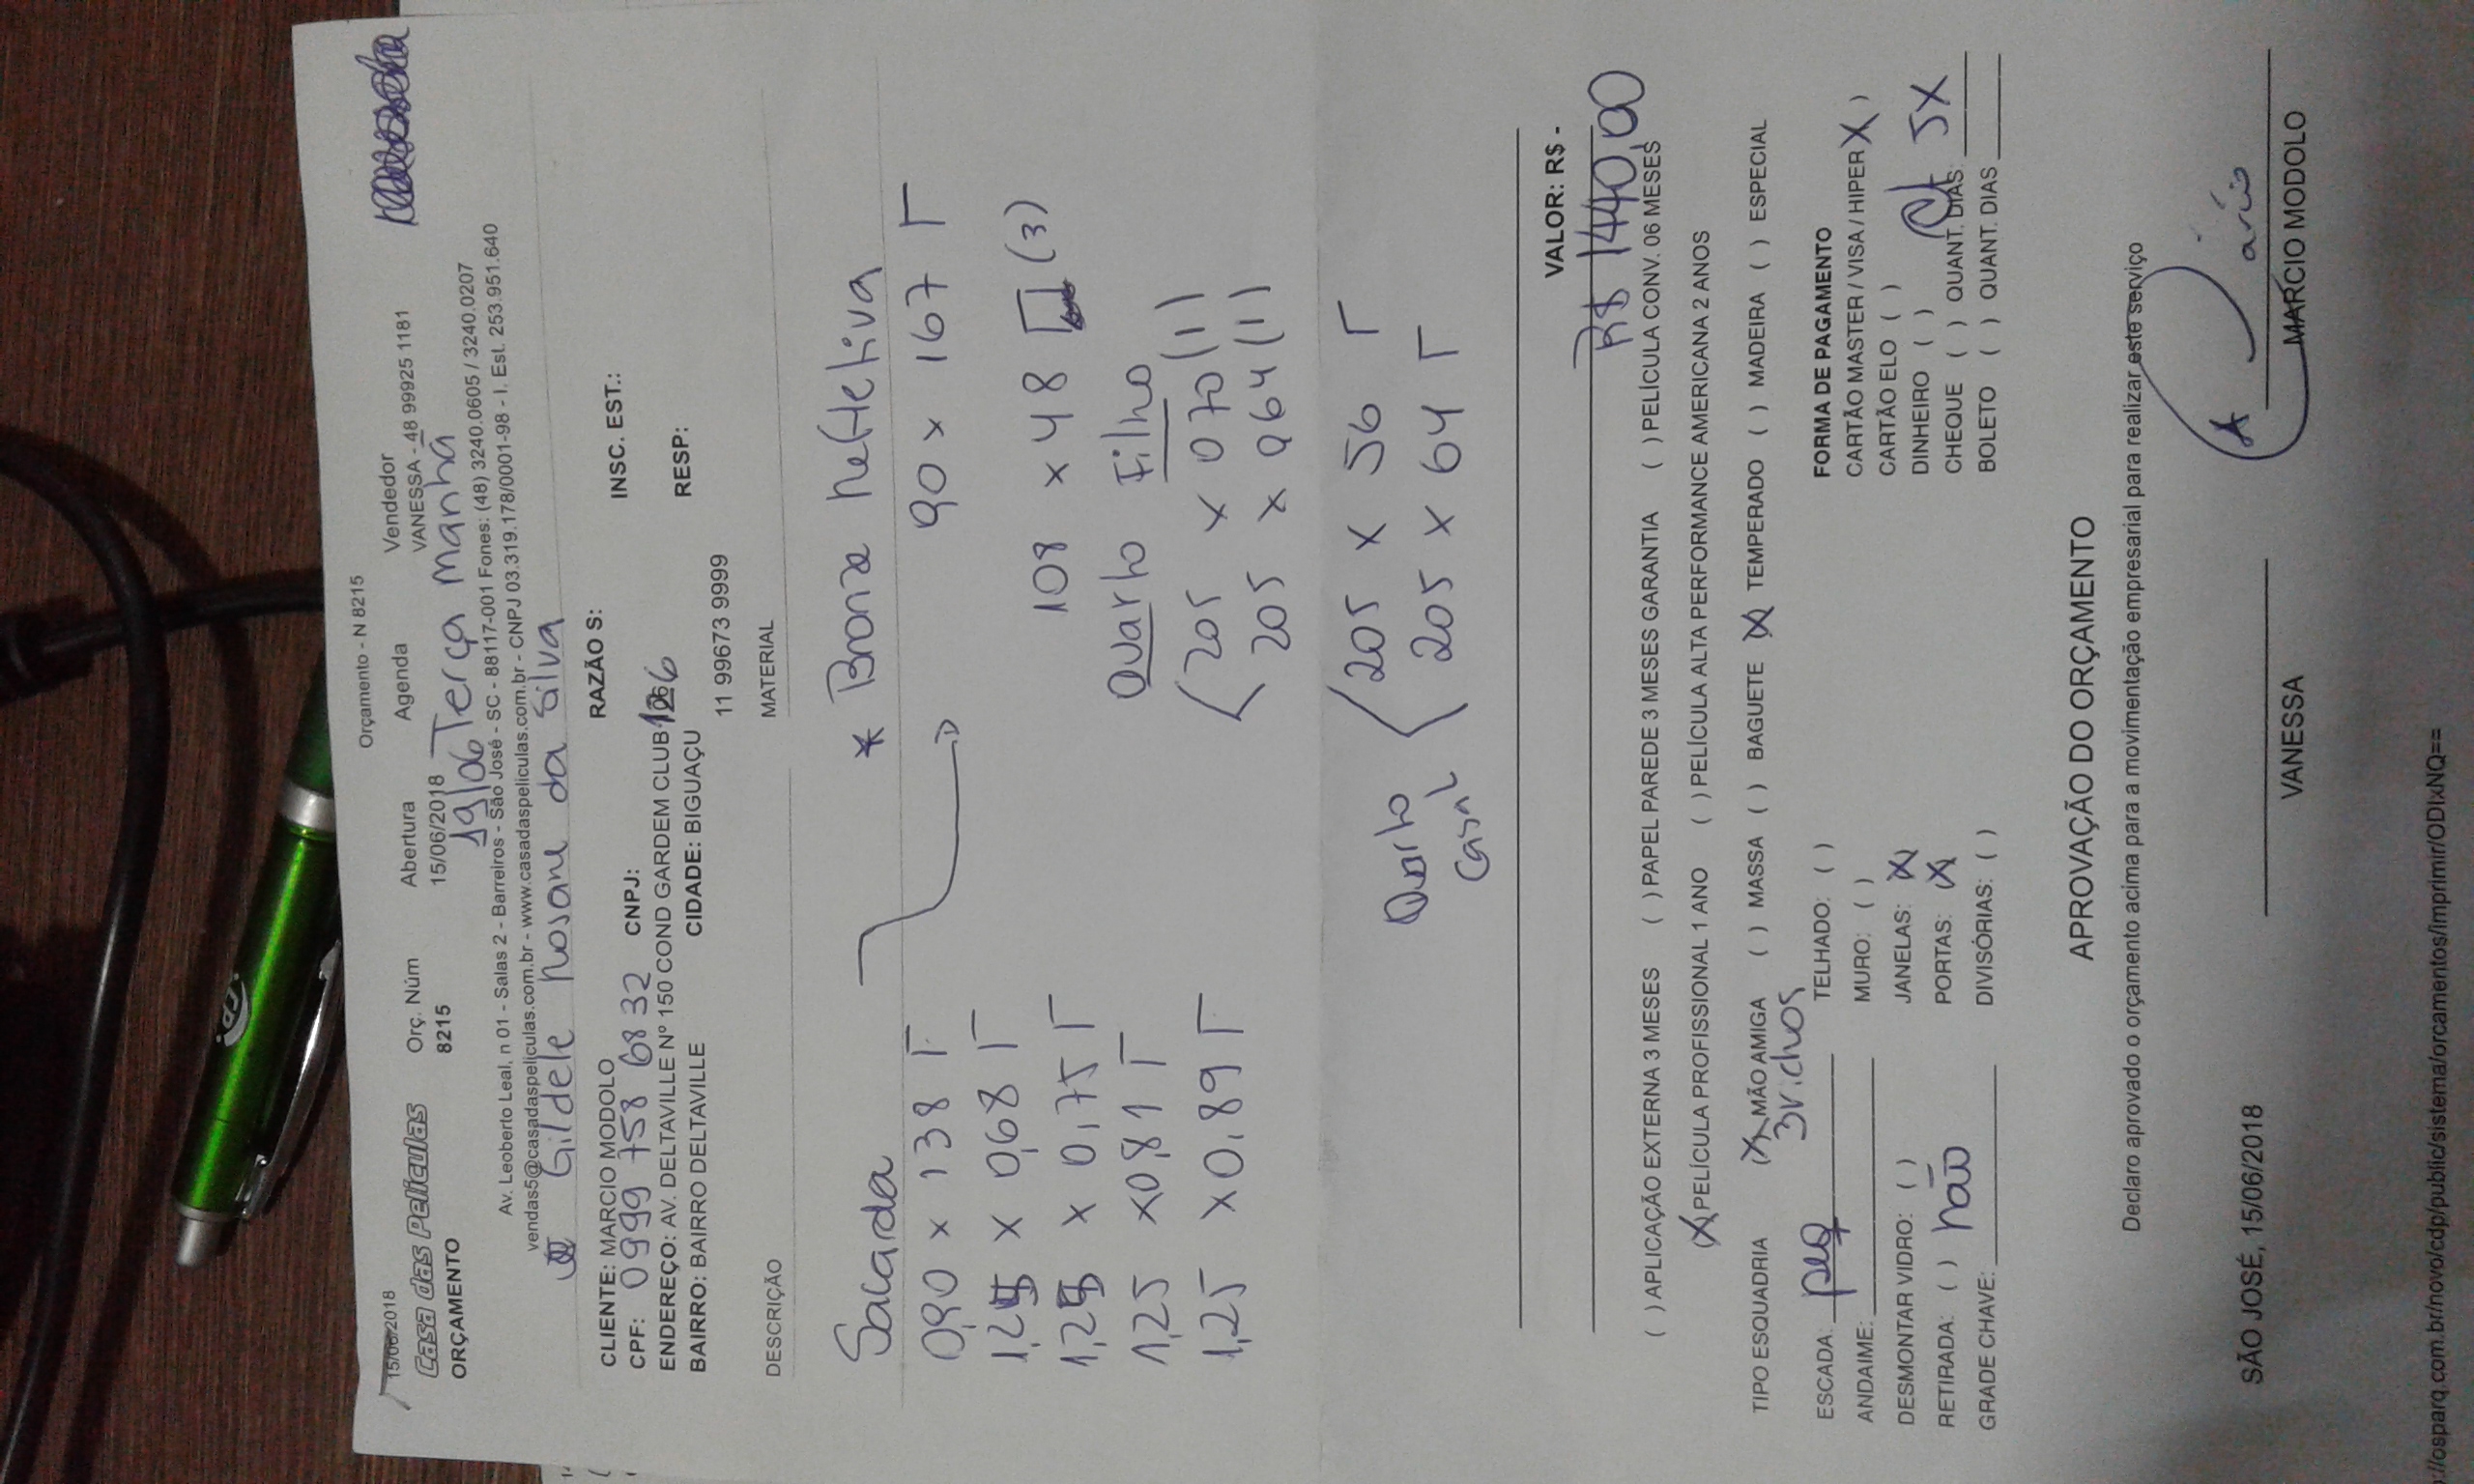 15/06/2018
Orçamento - N 8215
Casa das Películas
ORÇAMENTO
Orç. Núm
8215
Abertura
15/06/2018
Agenda
19/06 Terça manhã
Vendedor
VANESSA - 48 99925 1181
Av. Leoberto Leal, n 01 - Salas 2 - Barreiros - São José - SC - 88117-001 Fones: (48) 3240.0605 / 3240.0207
vendas5@casadaspeliculas.com.br - www.casadaspeliculas.com.br - CNPJ 03.319.178/0001-98 - I. Est. 253.951.640
Gildele Rosane da Silva
CLIENTE: MARCIO MODOLO RAZÃO S:
CPF: 0999 758 68 32 CNPJ: INSC. EST.:
ENDEREÇO: AV. DELTAVILLE Nº 150 COND GARDEM CLUB
BAIRRO: BAIRRO DELTAVILLE CIDADE: BIGUAÇU RESP:
11 99673 9999
DESCRIÇÃO MATERIAL
Sacada * Bronze Refletiva
0,90 x 138 90 x 167
1,25 x 0,68
1,25 x 0,75 108 x 48 (3)
1,25 x 0,81 Quarto Filho
1,25 x 0,89 205 x 070 (1)
205 x 064 (1)
Quarto Casal
205 x 56
205 x 64
VALOR: R$ -
R$ 1440,00
( ) APLICAÇÃO EXTERNA 3 MESES ( ) PAPEL PAREDE 3 MESES GARANTIA ( ) PELÍCULA CONV. 06 MESES
(X) PELÍCULA PROFISSIONAL 1 ANO ( ) PELÍCULA ALTA PERFORMANCE AMERICANA 2 ANOS
TIPO ESQUADRIA (X) MÃO AMIGA ( ) MASSA ( ) BAGUETE (X) TEMPERADO ( ) MADEIRA ( ) ESPECIAL
ESCADA: peq
ANDAIME:
DESMONTAR VIDRO: ( )
RETIRADA: ( ) não
GRADE CHAVE:
TELHADO: ( )
MURO: ( )
JANELAS: (X)
PORTAS: (X)
DIVISÓRIAS: ( )
FORMA DE PAGAMENTO
CARTÃO MASTER / VISA / HIPER (X)
CARTÃO ELO ( )
DINHEIRO ( )
CHEQUE ( ) QUANT. DIAS:
BOLETO ( ) QUANT. DIAS
5X
APROVAÇÃO DO ORÇAMENTO
Declaro aprovado o orçamento acima para a movimentação empresarial para realizar este serviço
SÃO JOSÉ, 15/06/2018
VANESSA
MARCIO MODOLO
//osparq.com.br/novo/cdp/public/sistema/orcamentos/imprimir/ODIxNQ==